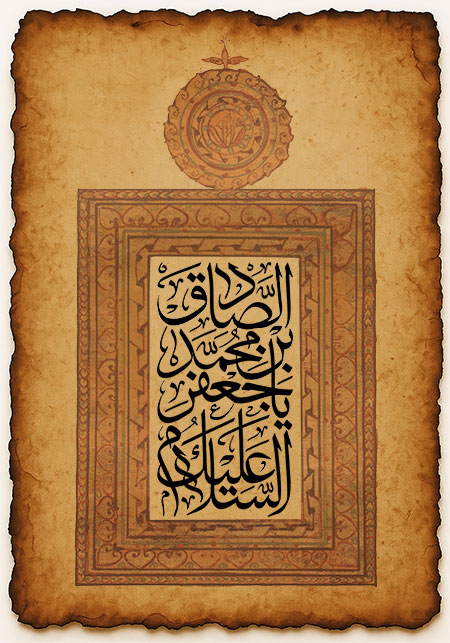 السَّلامُ عَلَیْكَ
یا جَعْفَرَ
بْنَ مُحَمَّدٍ
الصّادِقَ